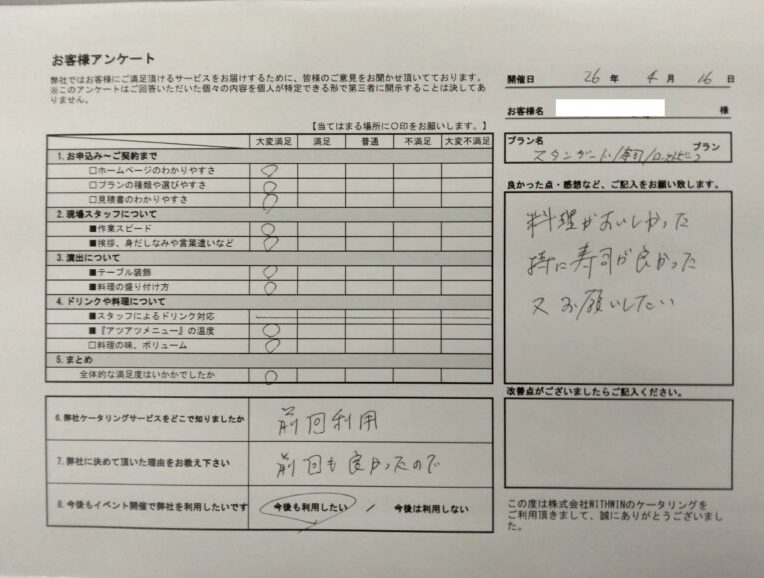 お客様アンケート
弊社ではお客様にご満足頂けるサービスをお届けするために、皆様のご意見をお聞かせ頂いております。
※このアンケートはご回答いただいた個々の内容を個人が特定できる形で第三者に開示することは決してあ
りません。
【当てはまる場所に○印をお願いします。】
大変満足 満足 普通 不満足 大変不満足
1. お申込み～ご契約まで
□ホームページのわかりやすさ ○
□プランの種類や選びやすさ ○
□見積書のわかりやすさ ○
2. 現場スタッフについて
■作業スピード ○
■挨拶、身だしなみや言葉遣いなど ○
3. 演出について
■テーブル装飾 ○
■料理の盛り付け方 ○
4. ドリンクや料理について
■スタッフによるドリンク対応
■『アツアツメニュー』の温度 ○
□料理の味、ボリューム ○
5. まとめ
全体的な満足度はいかがでしたか ○
6. 弊社ケータリングサービスをどこで知りましたか 前回利用
7. 弊社に決めて頂いた理由をお教え下さい 前回も良かったので
8. 今後もイベント開催で弊社を利用したいです 今後も利用したい / 今後は利用しない
開催日 26 年 4 月 16 日
お客様名 様
プラン名
スタンダード/寿司/ローストビーフ プラン
良かった点・感想など、ご記入をお願い致します。
料理がおいしかった
特に寿司が良かった
又お願いしたい
改善点がございましたらご記入ください。
この度は株式会社WITHWINのケータリングを
ご利用頂きまして、誠にありがとうございまし
た。